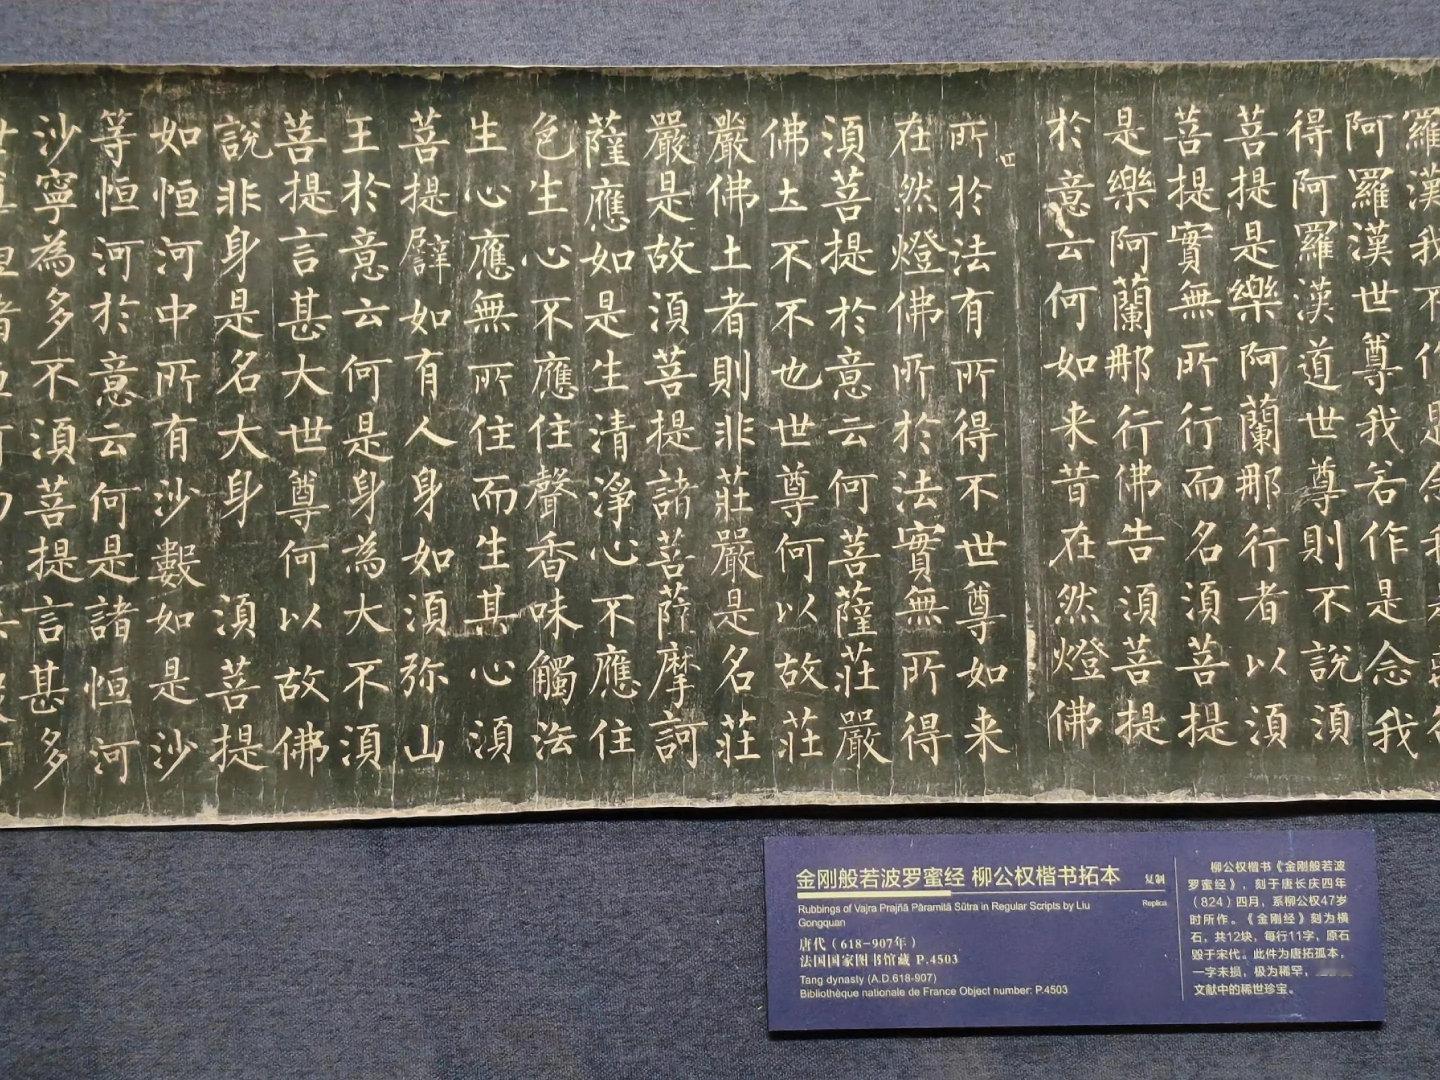 羅漢我不作是念我是
阿羅漢世尊我若作是念我
得阿羅漢道世尊則不說須
菩提是樂阿蘭那行者以須
菩提實無所行而名須菩提
是樂阿蘭那行佛告須菩提
於意云何如来昔在然燈佛
四
所於法有所得不世尊如来
在然燈佛所於法實無所得
須菩提於意云何菩薩莊嚴
佛土不不也世尊何以故莊
嚴佛土者則非莊嚴是名莊
嚴是故須菩提諸菩薩摩訶
薩應如是生清淨心不應住
色生心不應住聲香味觸法
生心應無所住而生其心須
菩提譬如有人身如須弥山
王於意云何是身為大不須
菩提言甚大世尊何以故佛
說非身是名大身 須菩提
如恒河中所有沙數如是沙
等恒河於意云何是諸恒河
沙寧為多不須菩提言甚多
金刚般若波罗蜜经 柳公权楷书拓本 复制
Rubbings of Vajra Prajñā Pāramitā Sūtra in Regular Scripts by Liu Replica
Gongquan
唐代（618-907年）
法国国家图书馆藏 P.4503
Tang dynasty (A.D.618-907)
Bibliothèque nationale de France Object number: P.4503
柳公权楷书《金刚般若波
罗蜜经》，刻于唐长庆四年
（824）四月，系柳公权47岁
时所作。《金刚经》刻为横
石，共12块，每行11字，原石
毁于宋代。此件为唐拓孤本，
一字未损，极为稀罕，
文献中的稀世珍宝。